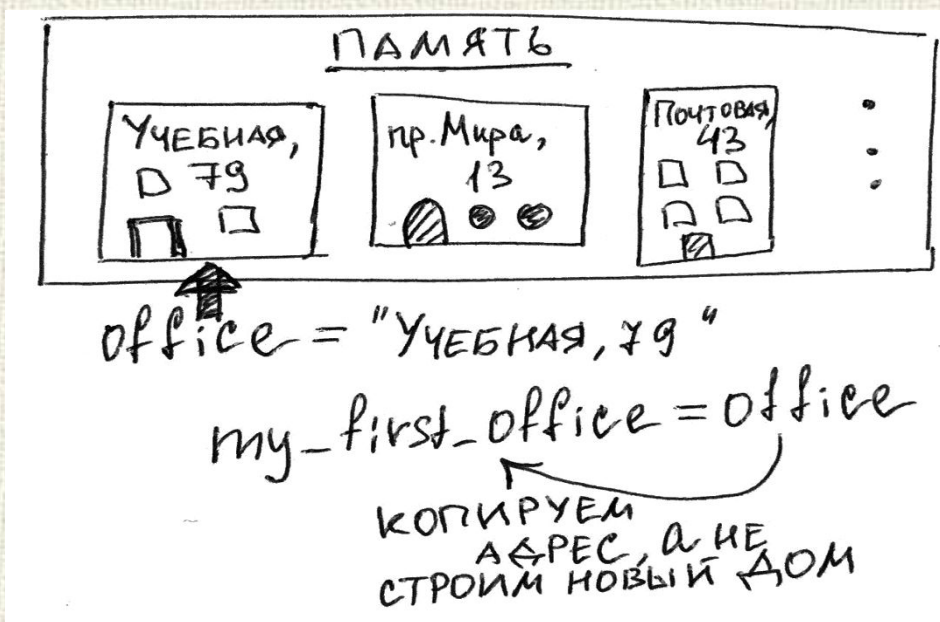 ПАМЯТЬ
УЧЕБНАЯ,
79
пр. Мира,
13
ПОЧТОВАЯ,
43
office = "УЧЕБНАЯ, 79"
my_first_office = office
КОПИРУЕМ
АДРЕС, а НЕ
СТРОИМ НОВЫЙ ДОМ